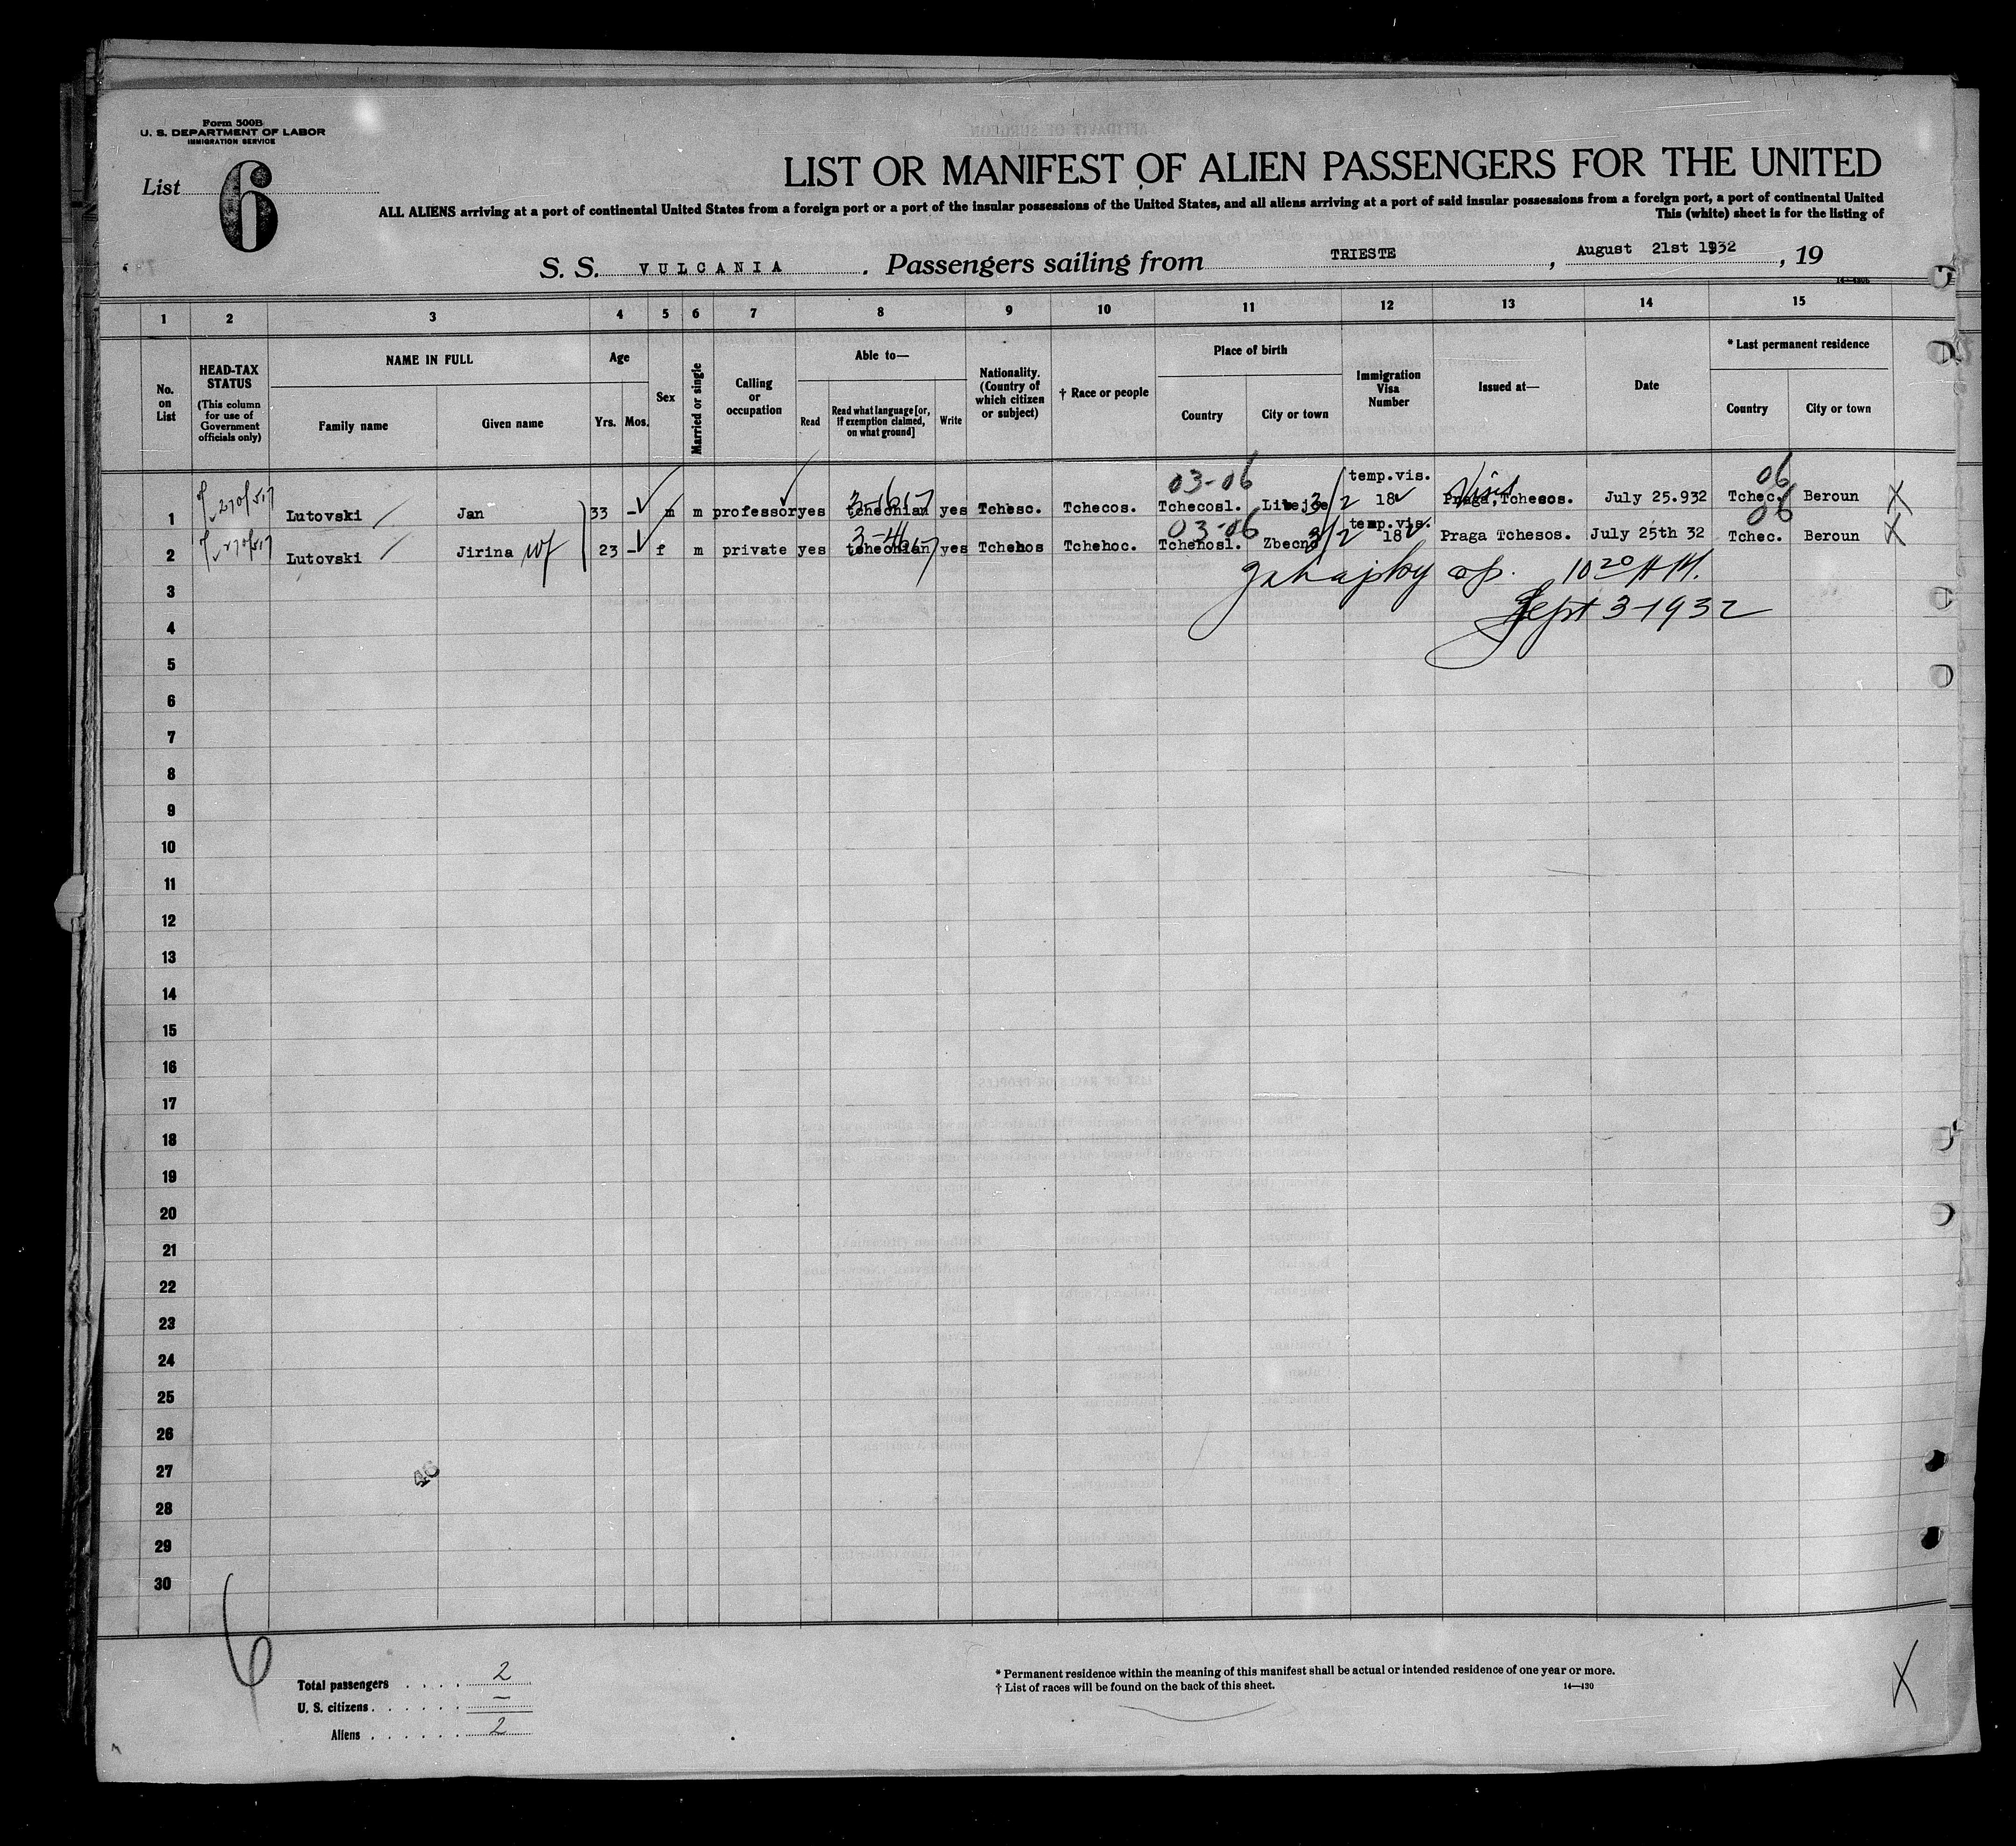 Form 500B
U. S. DEPARTMENT OF LABOR
IMMIGRATION SERVICE
List 6
LIST OR MANIFEST OF ALIEN PASSENGERS FOR THE UNITED
ALL ALIENS arriving at a port of continental United States from a foreign port or a port of the insular possessions of the United States, and all aliens arriving at a port of said insular possessions from a foreign port, a port of continental United
This (white) sheet is for the listing of
S. S. VULCANIA . Passengers sailing from TRIESTE , August 21st 1932 , 19
1 2 3 4 5 6 7 8 9 10 11 12 13 14 15
No. on List
HEAD-TAX STATUS (This column for use of Government officials only)
NAME IN FULL
Family name
Given name
Age
Yrs. Mos.
Sex
Married or single
Calling or occupation
Able to—
Read
Read what language [or, if exemption claimed, on what ground]
Write
Nationality. (Country of which citizen or subject)
† Race or people
Place of birth
Country
City or town
Immigration Visa Number
Issued at—
Date
* Last permanent residence
Country
City or town
03-06 temp.vis. 06
1 Lutovski Jan 33 - m m professor yes tchechian yes Tchesc. Tchecos. Tchecosl. 3/2 18 Praga, Tchesos. July 25.932 Tchec. Beroun X
03-06 temp.vis. 06
2 Lutovski Jirina wf 23 - f m private yes tchechian yes Tchehos Tchehoc. Tchehosl. Zbecno 3/2 18 Praga Tchesos. July 25th 32 Tchec. Beroun X
3 10 20 A M.
4 Sept 3-1932
5
6
7
8
9
10
11
12
13
14
15
16
17
18
19
20
21
22
23
24
25
26
27
28
29
30
6
Total passengers . . . . 2
U. S. citizens . . . . . . —
Aliens . . . . . . 2
* Permanent residence within the meaning of this manifest shall be actual or intended residence of one year or more.
† List of races will be found on the back of this sheet.
14—430
X